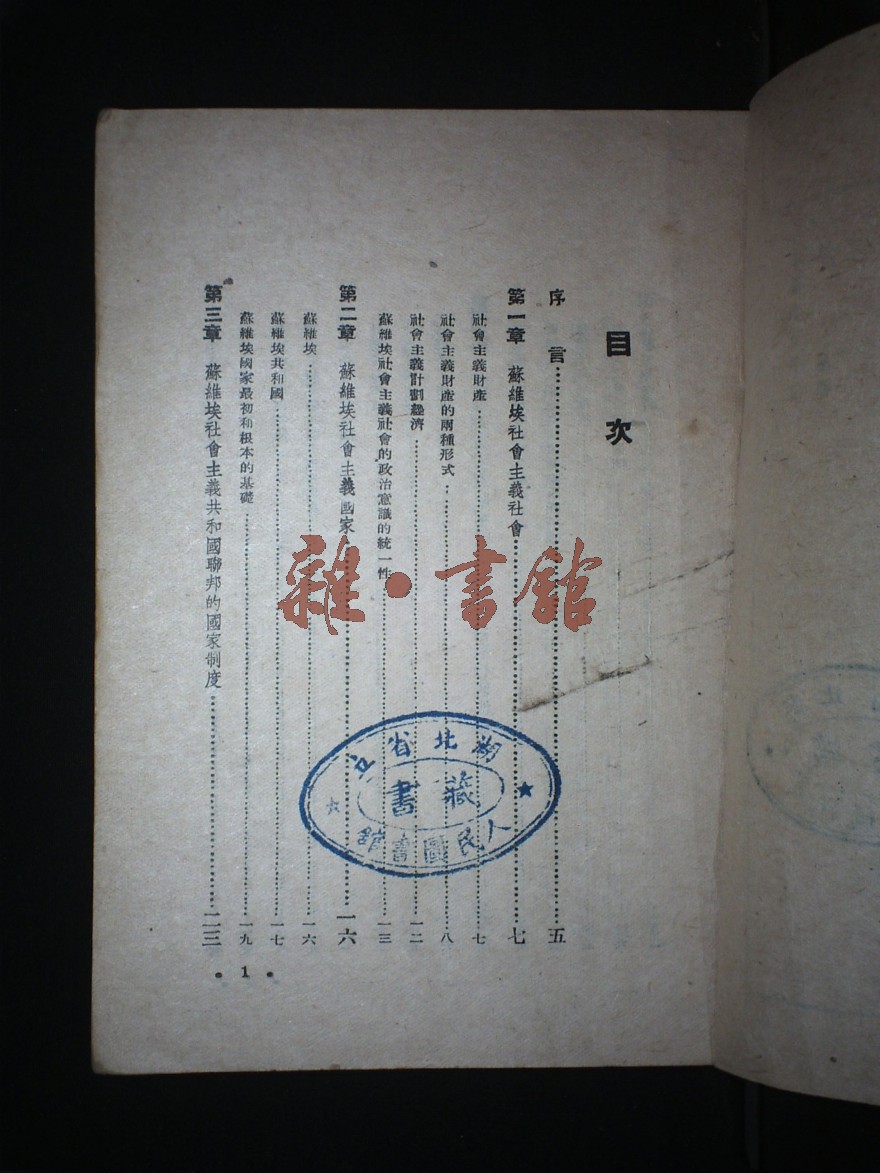 目次
序言 五
第一章 蘇維埃社會主義社會 七
社會主義財產 七
社會主義財產的兩種形式 八
社會主義計劃經濟 一二
蘇維埃社會主義社會的政治意識的統一性 一三
第二章 蘇維埃社會主義國家 一六
蘇維埃 一六
蘇維埃共和國 一七
蘇維埃國家最初和根本的基礎 一九
第三章 蘇維埃社會主義共和國聯邦的國家制度 二三
• 1 •
雜•書館
湖北省立
藏書
人民圖書館